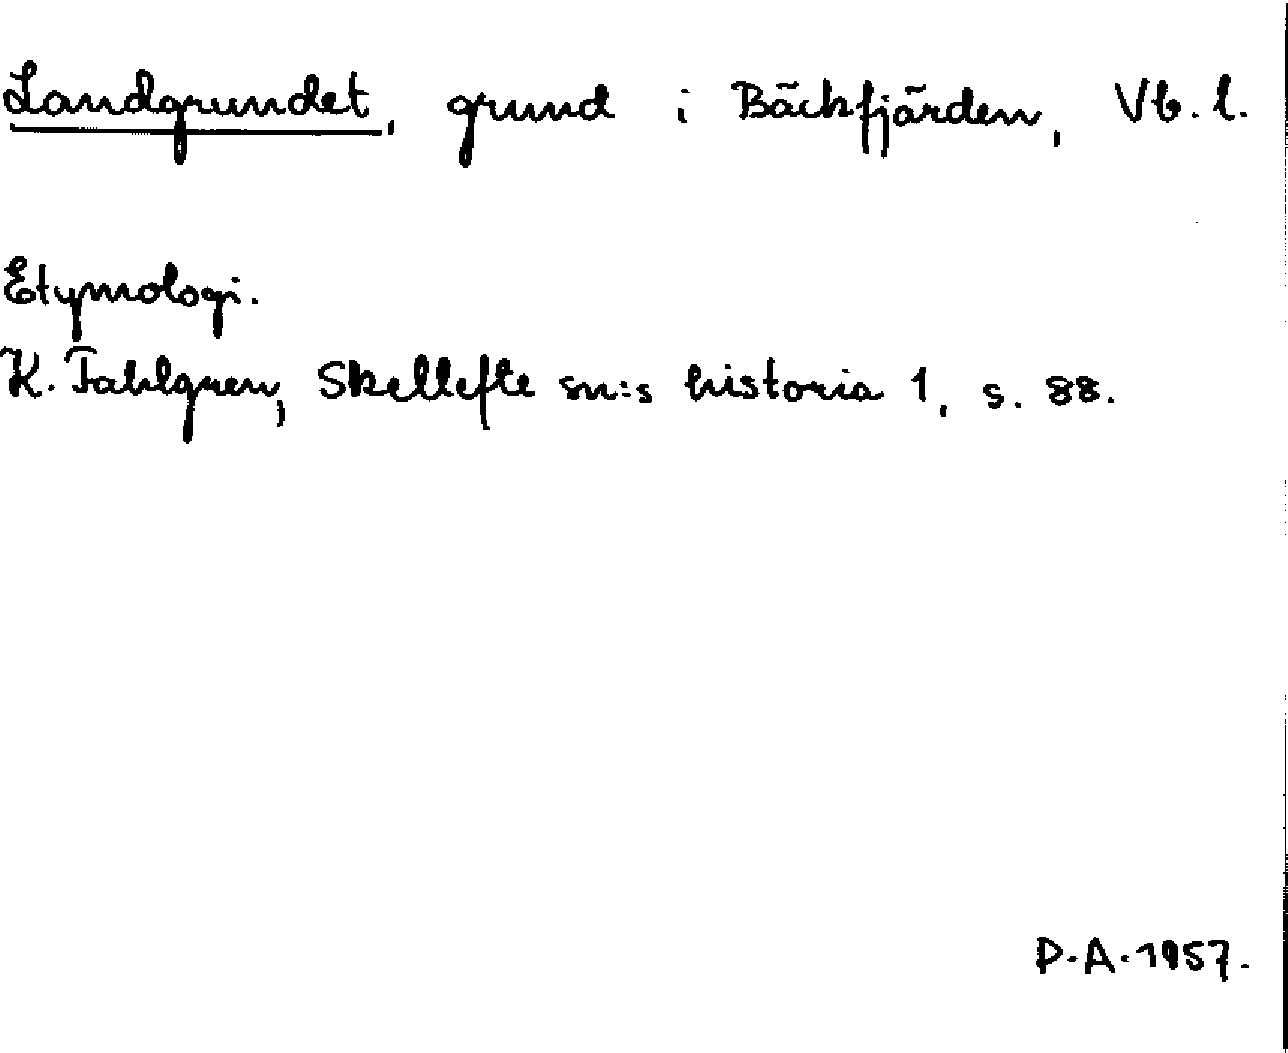 Landgrundet, grund i Bäckfjärden, Vb. l.
Etymologi.
K. Fahlgren, Skellefte sn:s historia 1, s. 88.
P.A. 1957.